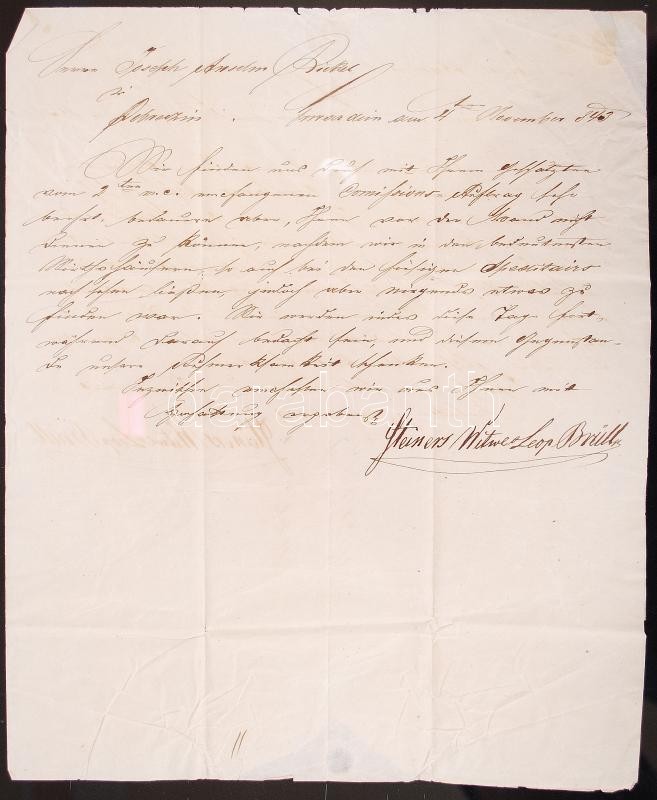 Herrn Joseph Anselm
in
Debreczin. am 4ten November 843
Wir finden uns durch mit Ihrem Geschätzten
vom 2ten m.c. empfangenen Comissions-Auftrag sehr
beehrt, bedauern aber, Ihnen vor der Hand nicht
dienen zu können, nachdem wir in den bedeutensten
Wirthshäusern, so auch bei den hiesigen Spediteurs
nachsehen ließen, jedoch aber nirgends etwas zu
finden war. Wir werden indes diese Tage fort-
während darauf bedacht sein, und diesem Gegenstan-
de unsere Aufmerksamkeit schenken.
Inzwischen empfehlen wir uns Ihnen mit
Hochachtung ergebenst
Steiners Witwe & Leop. Brüll
darabanth